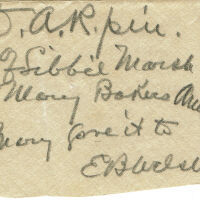 J.A.R. pin.
Of Libbie Marsh
Mary Bakers
Mary gave it to
E B Welsh